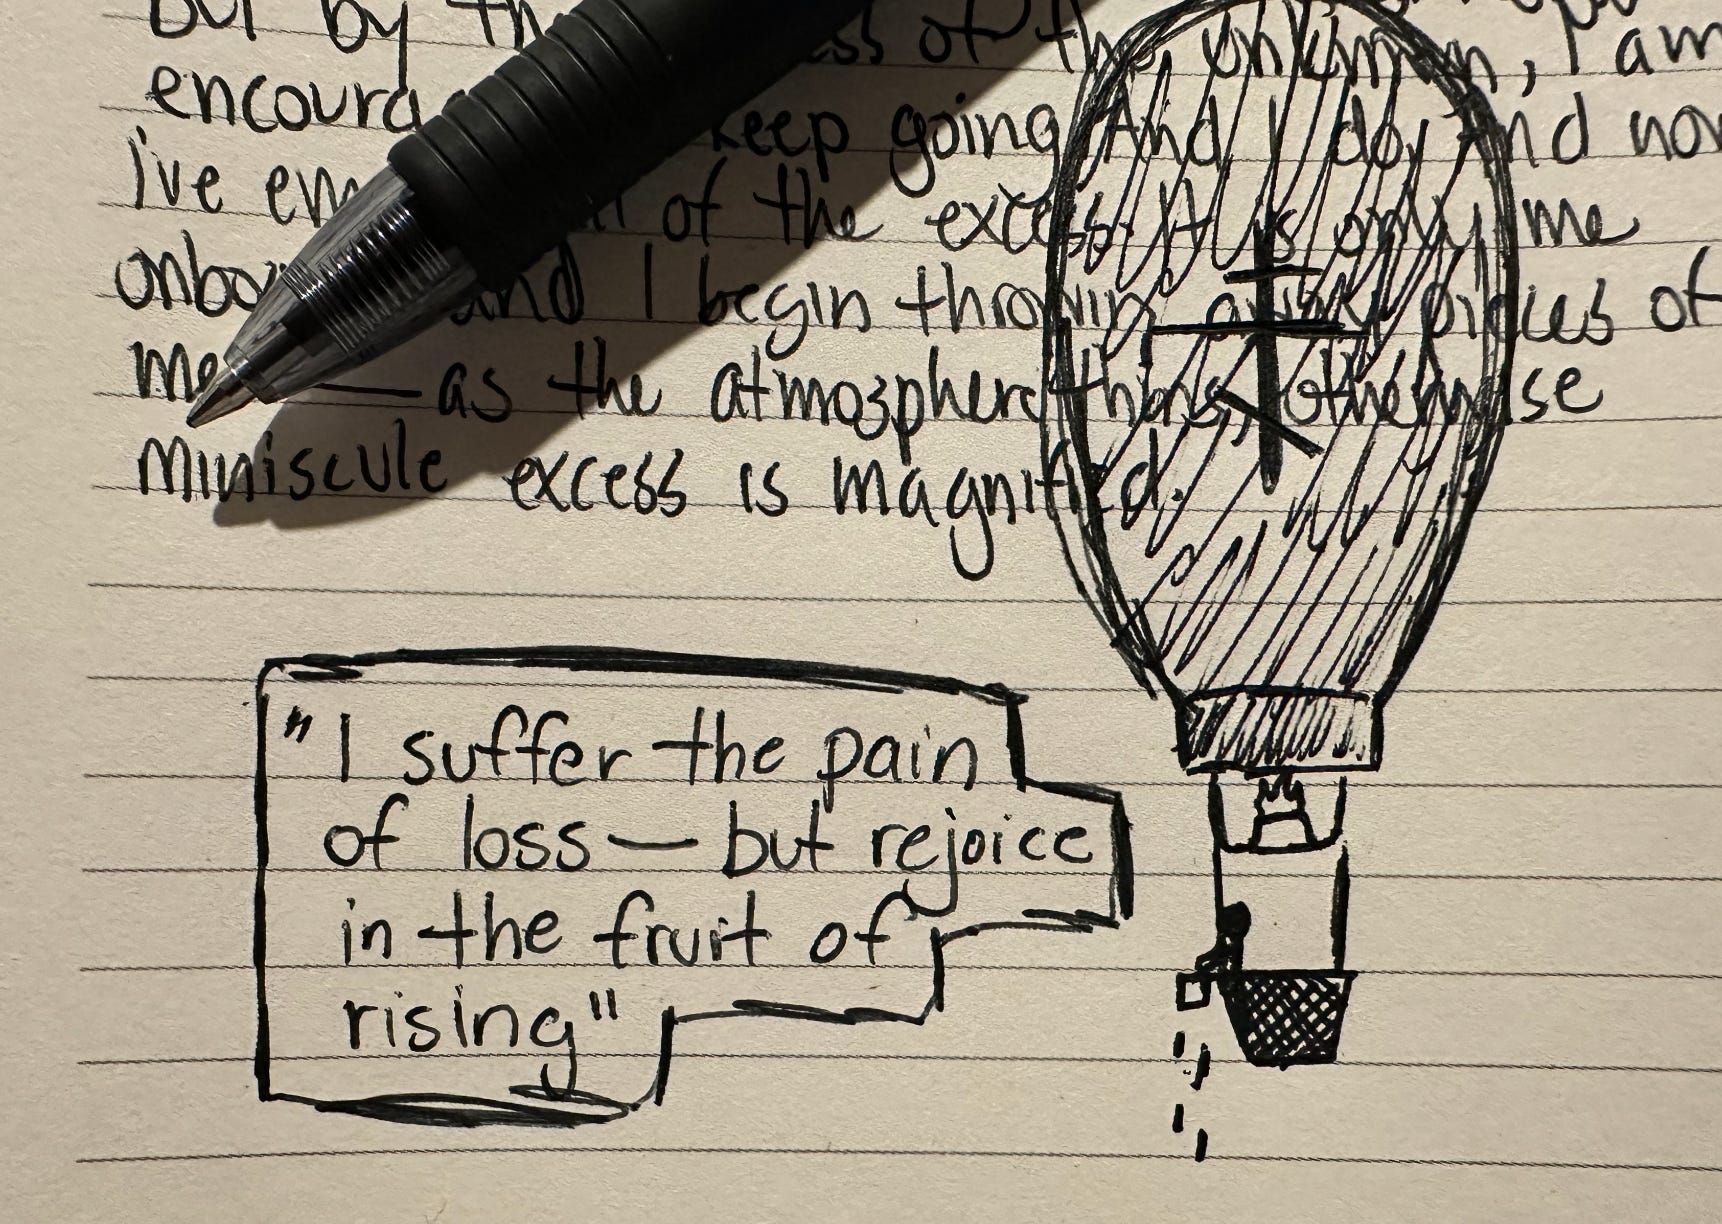 but by the of the unknown, I am
encoura keep going. And I do, And now
I've em of the excess. It is only me
onboa and I begin throwing away pieces of
me — as the atmosphere thins, otherwise
miniscule excess is magnified.
"I suffer the pain
of loss — but rejoice
in the fruit of
rising"